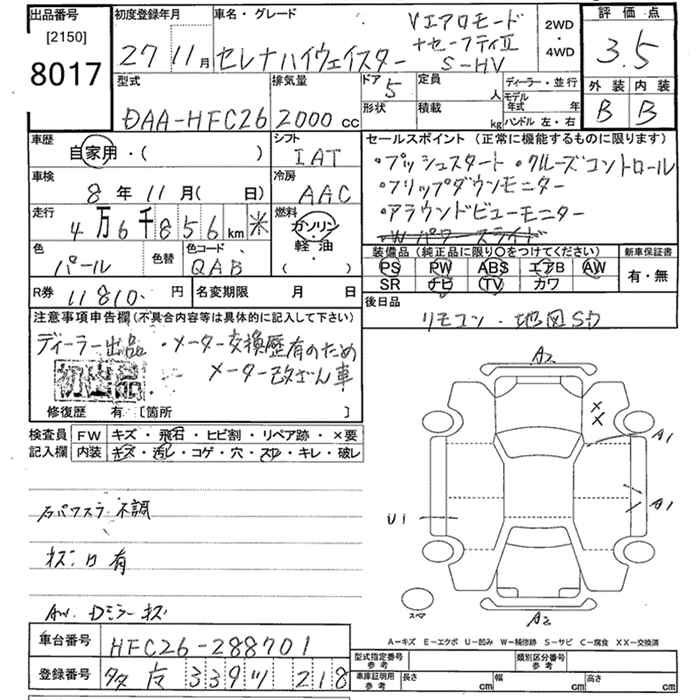 出品番号
[2150]
8017
初度登録年月
27 11月
車名・グレード
Vエアロモード
+セーフティⅡ
セレナハイウェイスター S-HV
2WD
・
4WD
評価点
3.5
外装 内装
B B
型式
DAA-HFC26
排気量
2000 cc
ドア
5
形状
定員
人
積載
kg
ディーラー・並行
モデル年式 年
ハンドル 左・右
車歴
自家用・( )
シフト
IAT
車検
8年11月( 日)
冷房
AAC
走行
4万6千856km 米
燃料
ガソリン
軽油
( )
色
パール
色替
色コード
QAB
R券
11810 円
名変期限 月 日
セールスポイント (正常に機能するものに限ります)
・プッシュスタート・クルーズコントロール
・フリップダウンモニター
・アラウンドビューモニター
・Wパワースライド
装備品 (純正品に限り○をつけてください)
PS PW ABS エアB AW
SR ナビ TV カワ
新車保証書
有・無
後日品
リモコン・地図SD
注意事項申告欄(不具合内容等は具体的に記入して下さい)
ディーラー出品・メーター交換歴有のため
メーター改ざん車
初出品
修復歴 有 [箇所 ]
検査員記入欄
FW キズ・飛石・ヒビ割・リペア跡・×要
内装 キズ・汚レ・コゲ・穴・スレ・キレ・破レ
左パワスラ不調
キズ凹有
AW.Dミラーキズ
A2
XX
A1
A1
U1
A2
スペア
A－キズ E－エクボ U－凹み W－補修跡 S－サビ C－腐食 XX－交換済
車台番号
HFC26-288701
登録番号
339 ツ 218
型式指定番号
参考
類別区分番号
参考
車庫証明用
参考
長さ cm
幅 cm
高さ cm